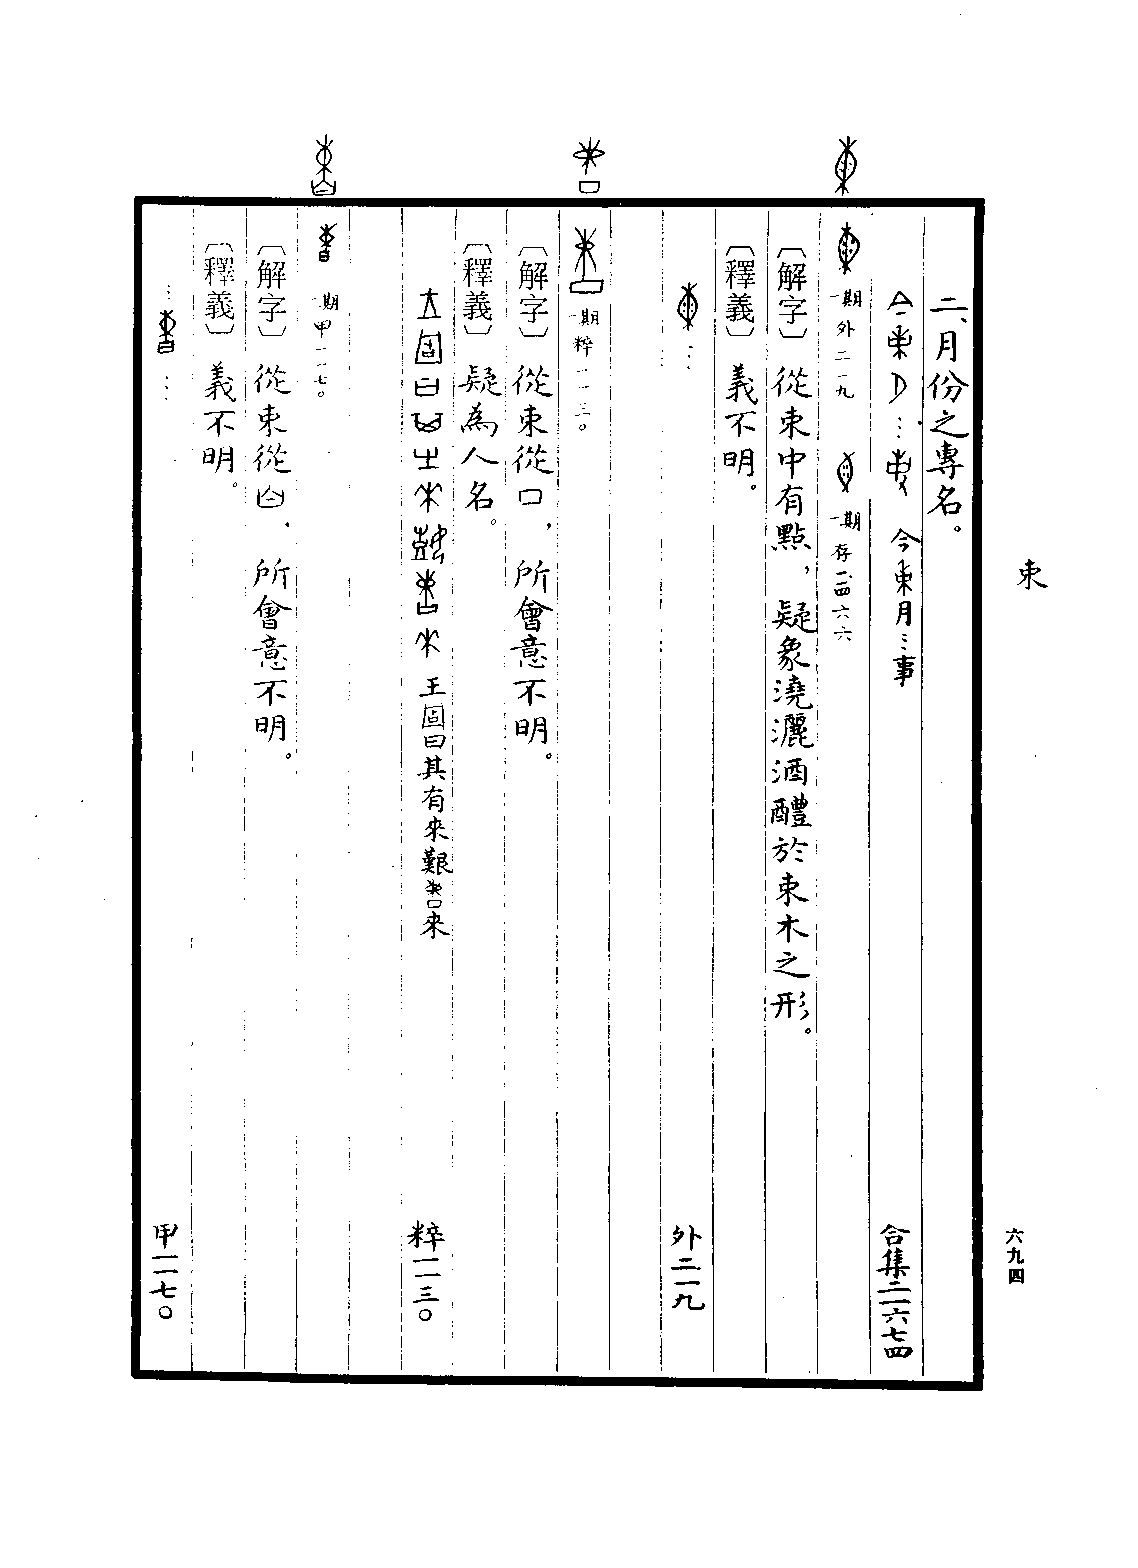 束
六九四
二、月份之專名。
今束月…事 合集二一六七四
一期外二一九 一期存二四六六
〔解字〕從束中有點，疑象澆灑酒醴於束木之形。
〔釋義〕義不明。
… 外二一九
一期粹一一三〇
〔解字〕從束從口，所會意不明。
〔釋義〕疑為人名。
王固曰其有來艱來 粹一一三〇
一期甲一一七〇
〔解字〕從束從，所會意不明。
〔釋義〕義不明。
…… 甲一一七〇